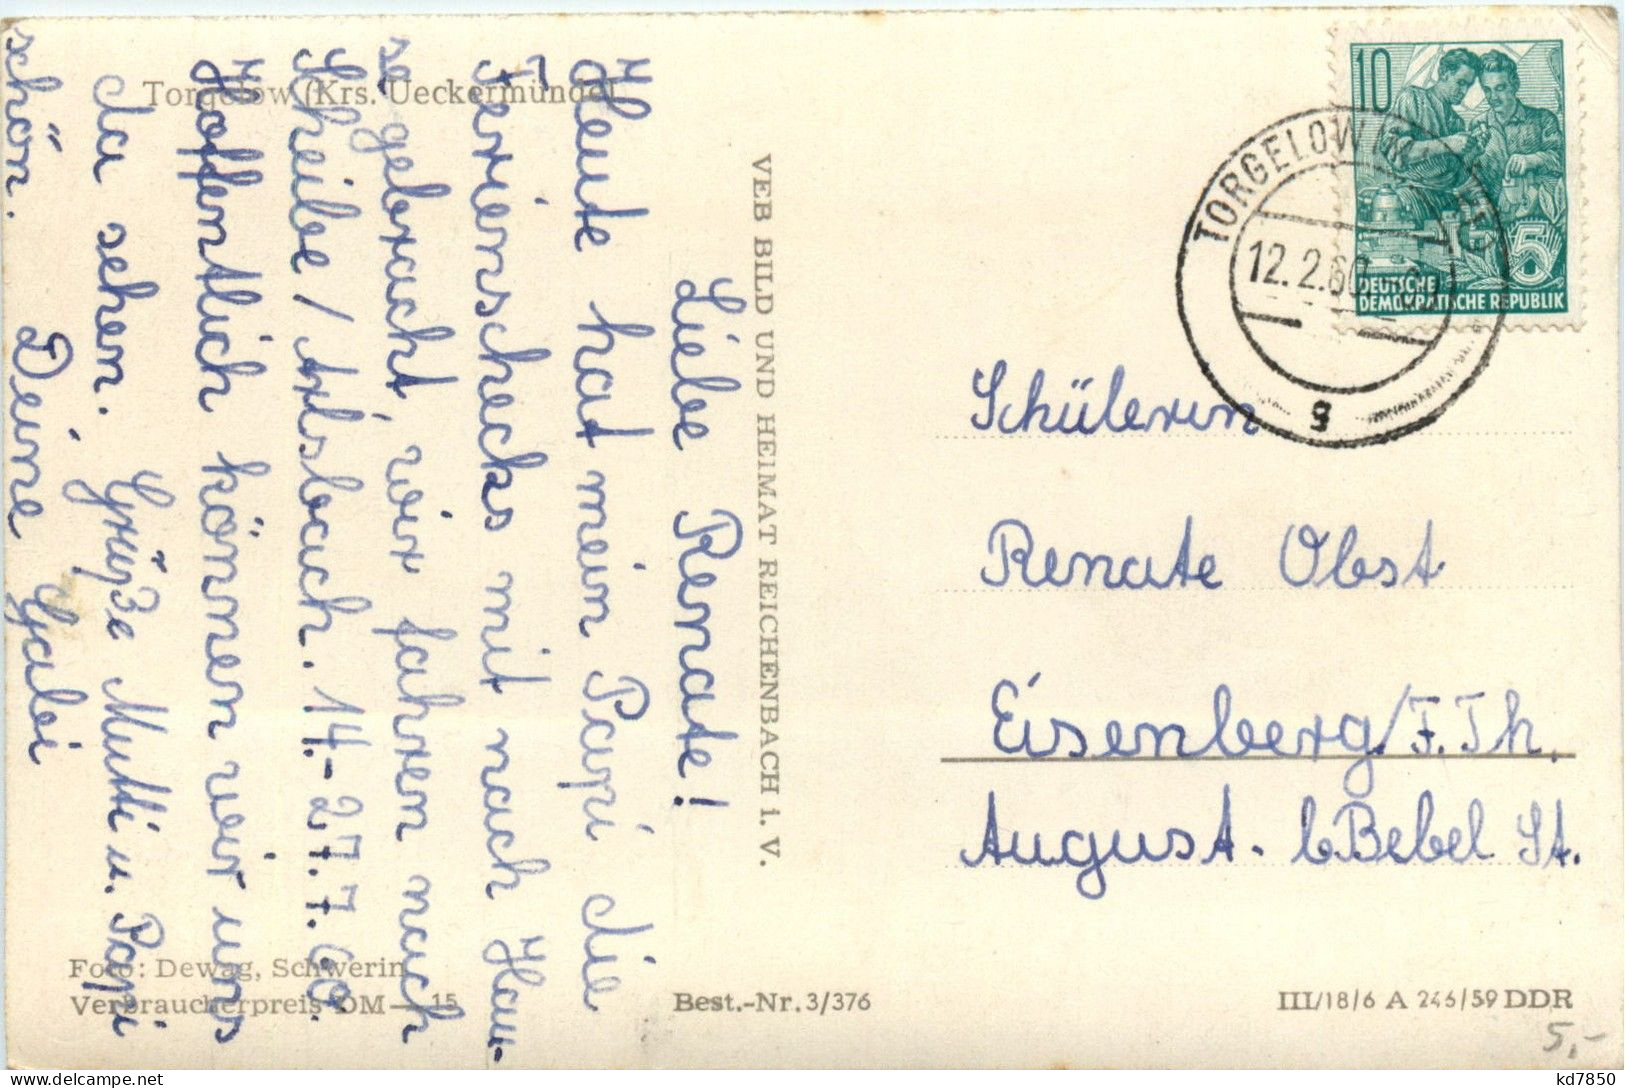 Torgelow (Krs. Ueckermünde)
Liebe Renate!
Heute hat mein Papi die
Ferienschecks mit nach Hau-
se gebracht, wir fahren nach
Scheibe/Alsbach. 14.-27.7.60.
Hoffentlich können wir uns
da sehen. Grüße Mutti u. Papi
schön. Deine Gabi
VEB BILD UND HEIMAT REICHENBACH i. V.
10
5
DEUTSCHE
DEMOKRATISCHE REPUBLIK
TORGELOW
12.2.60
g
Schülerin
Renate Obst
Eisenberg/F.Th.
August. bBebel St.
Foto: Dewag, Schwerin
Verbraucherpreis DM —.15
Best.-Nr. 3/376
III/18/6 A 246/59 DDR
5,-
kd7850